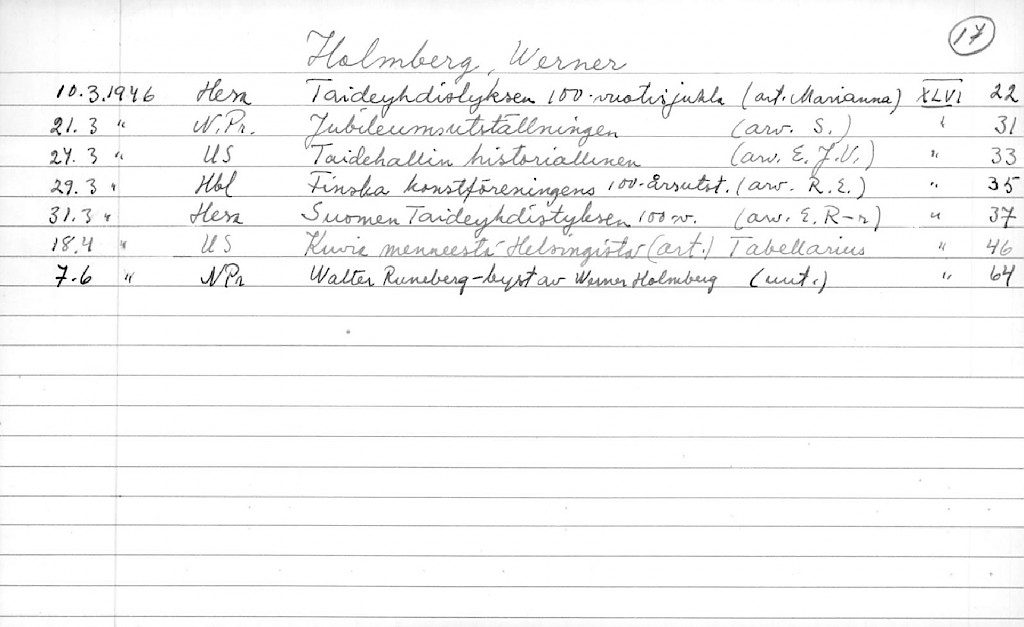 17
Holmberg, Werner
10.3.1946 Hesa Taideyhdistyksen 100-vuotisjuhla (art. Marianna) XLVI 22
21.3 " N.Pr. Jubileumsutställningen (arv. S.) " 31
24.3 " US Taidehallin historiallinen (arv. E.J.V.) " 33
29.3 " Hbl Finska konstföreningens 100-årsutst. (arv. R.E.) " 35
31.3 " Hesa Suomen Taideyhdistyksen 100-v. (arv. E. R-r) " 37
18.4 " US Kuvia menneestä Helsingistä (art.) Tabellarius " 46
7.6 " NPr Walter Runeberg-byst av Werner Holmberg (uut.) " 64